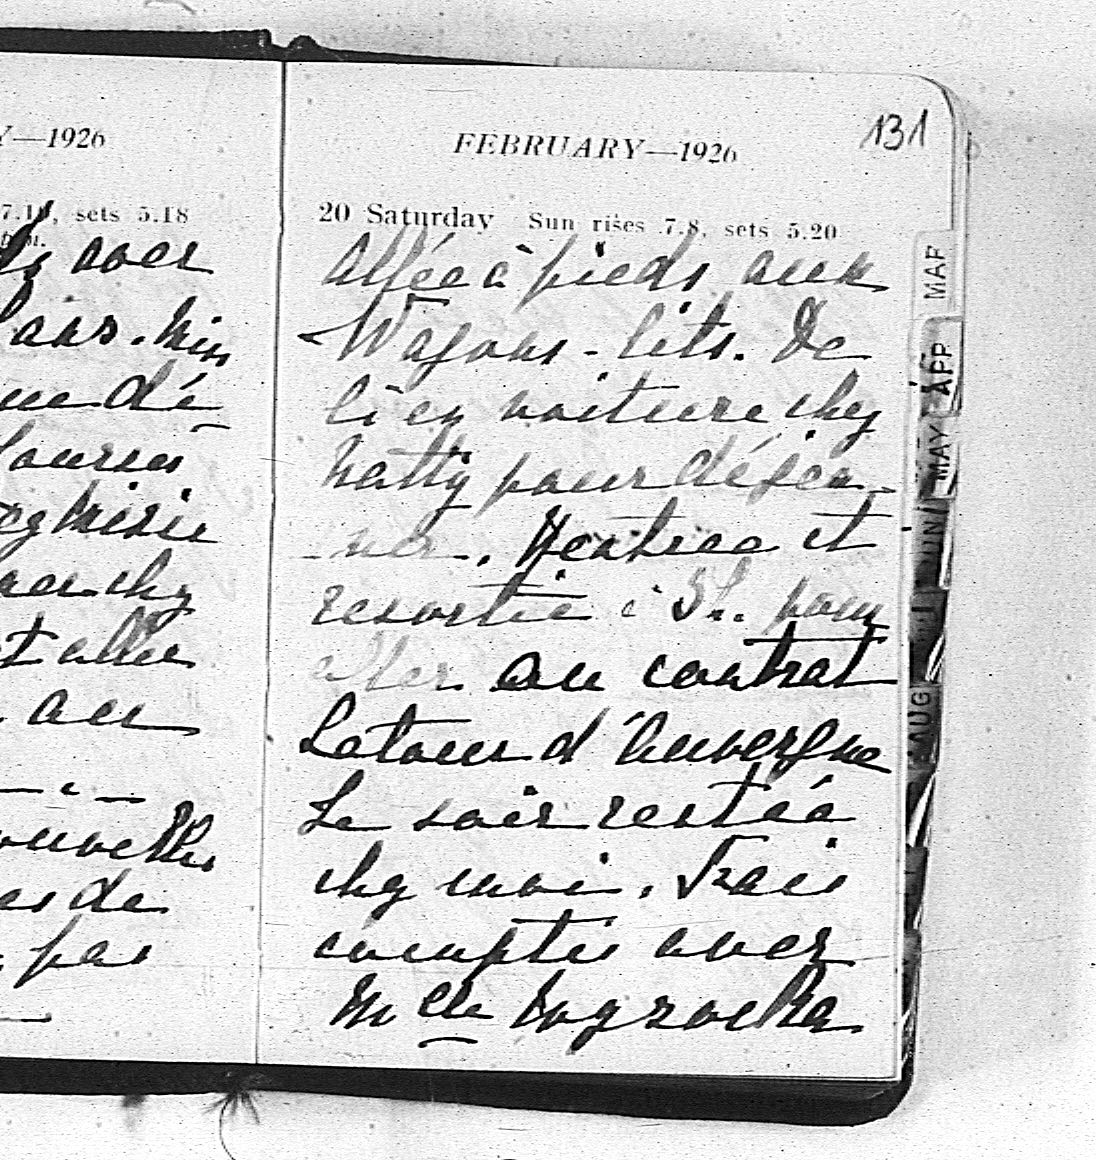 Y—1926
7.10, sets 5.18
avec
Miss
dé
Courses
chez
et allée
au
nouvelles
as de
pas
131
FEBRUARY—1926
20 Saturday Sun rises 7.8, sets 5.20
Allée à pieds aux
Wagons-lits. De
là en voiture chez
Natty pour déjeu-
-ner. Rentrée et
resortie à 3h. pour
aller au contrat
Latour d'Auvergne
Le soir restée
chez moi. Fais
comptes avec
Mlle
MAR
APP
MAY
JUN
AUG